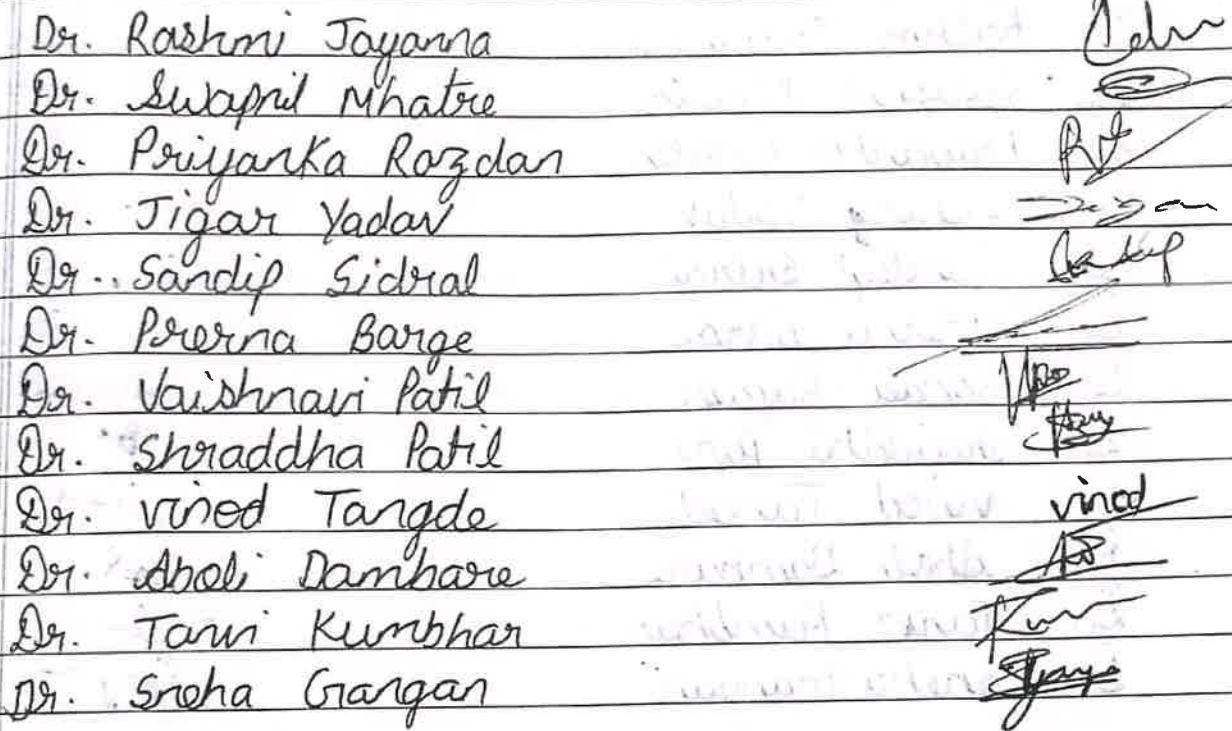 Dr. Rashmi Jayanna
Dr. Swapnil Mhatre
Dr. Priyanka Razdan
Dr. Jigar Yadav
Dr. Sandip Sidral
Dr. Prerna Barge
Dr. Vaishnavi Patil
Dr. Shraddha Patil
Dr. Vinod Tangde vinod
Dr. Aboli Dambare
Dr. Tanvi Kumbhar
Dr. Sneha Gangan